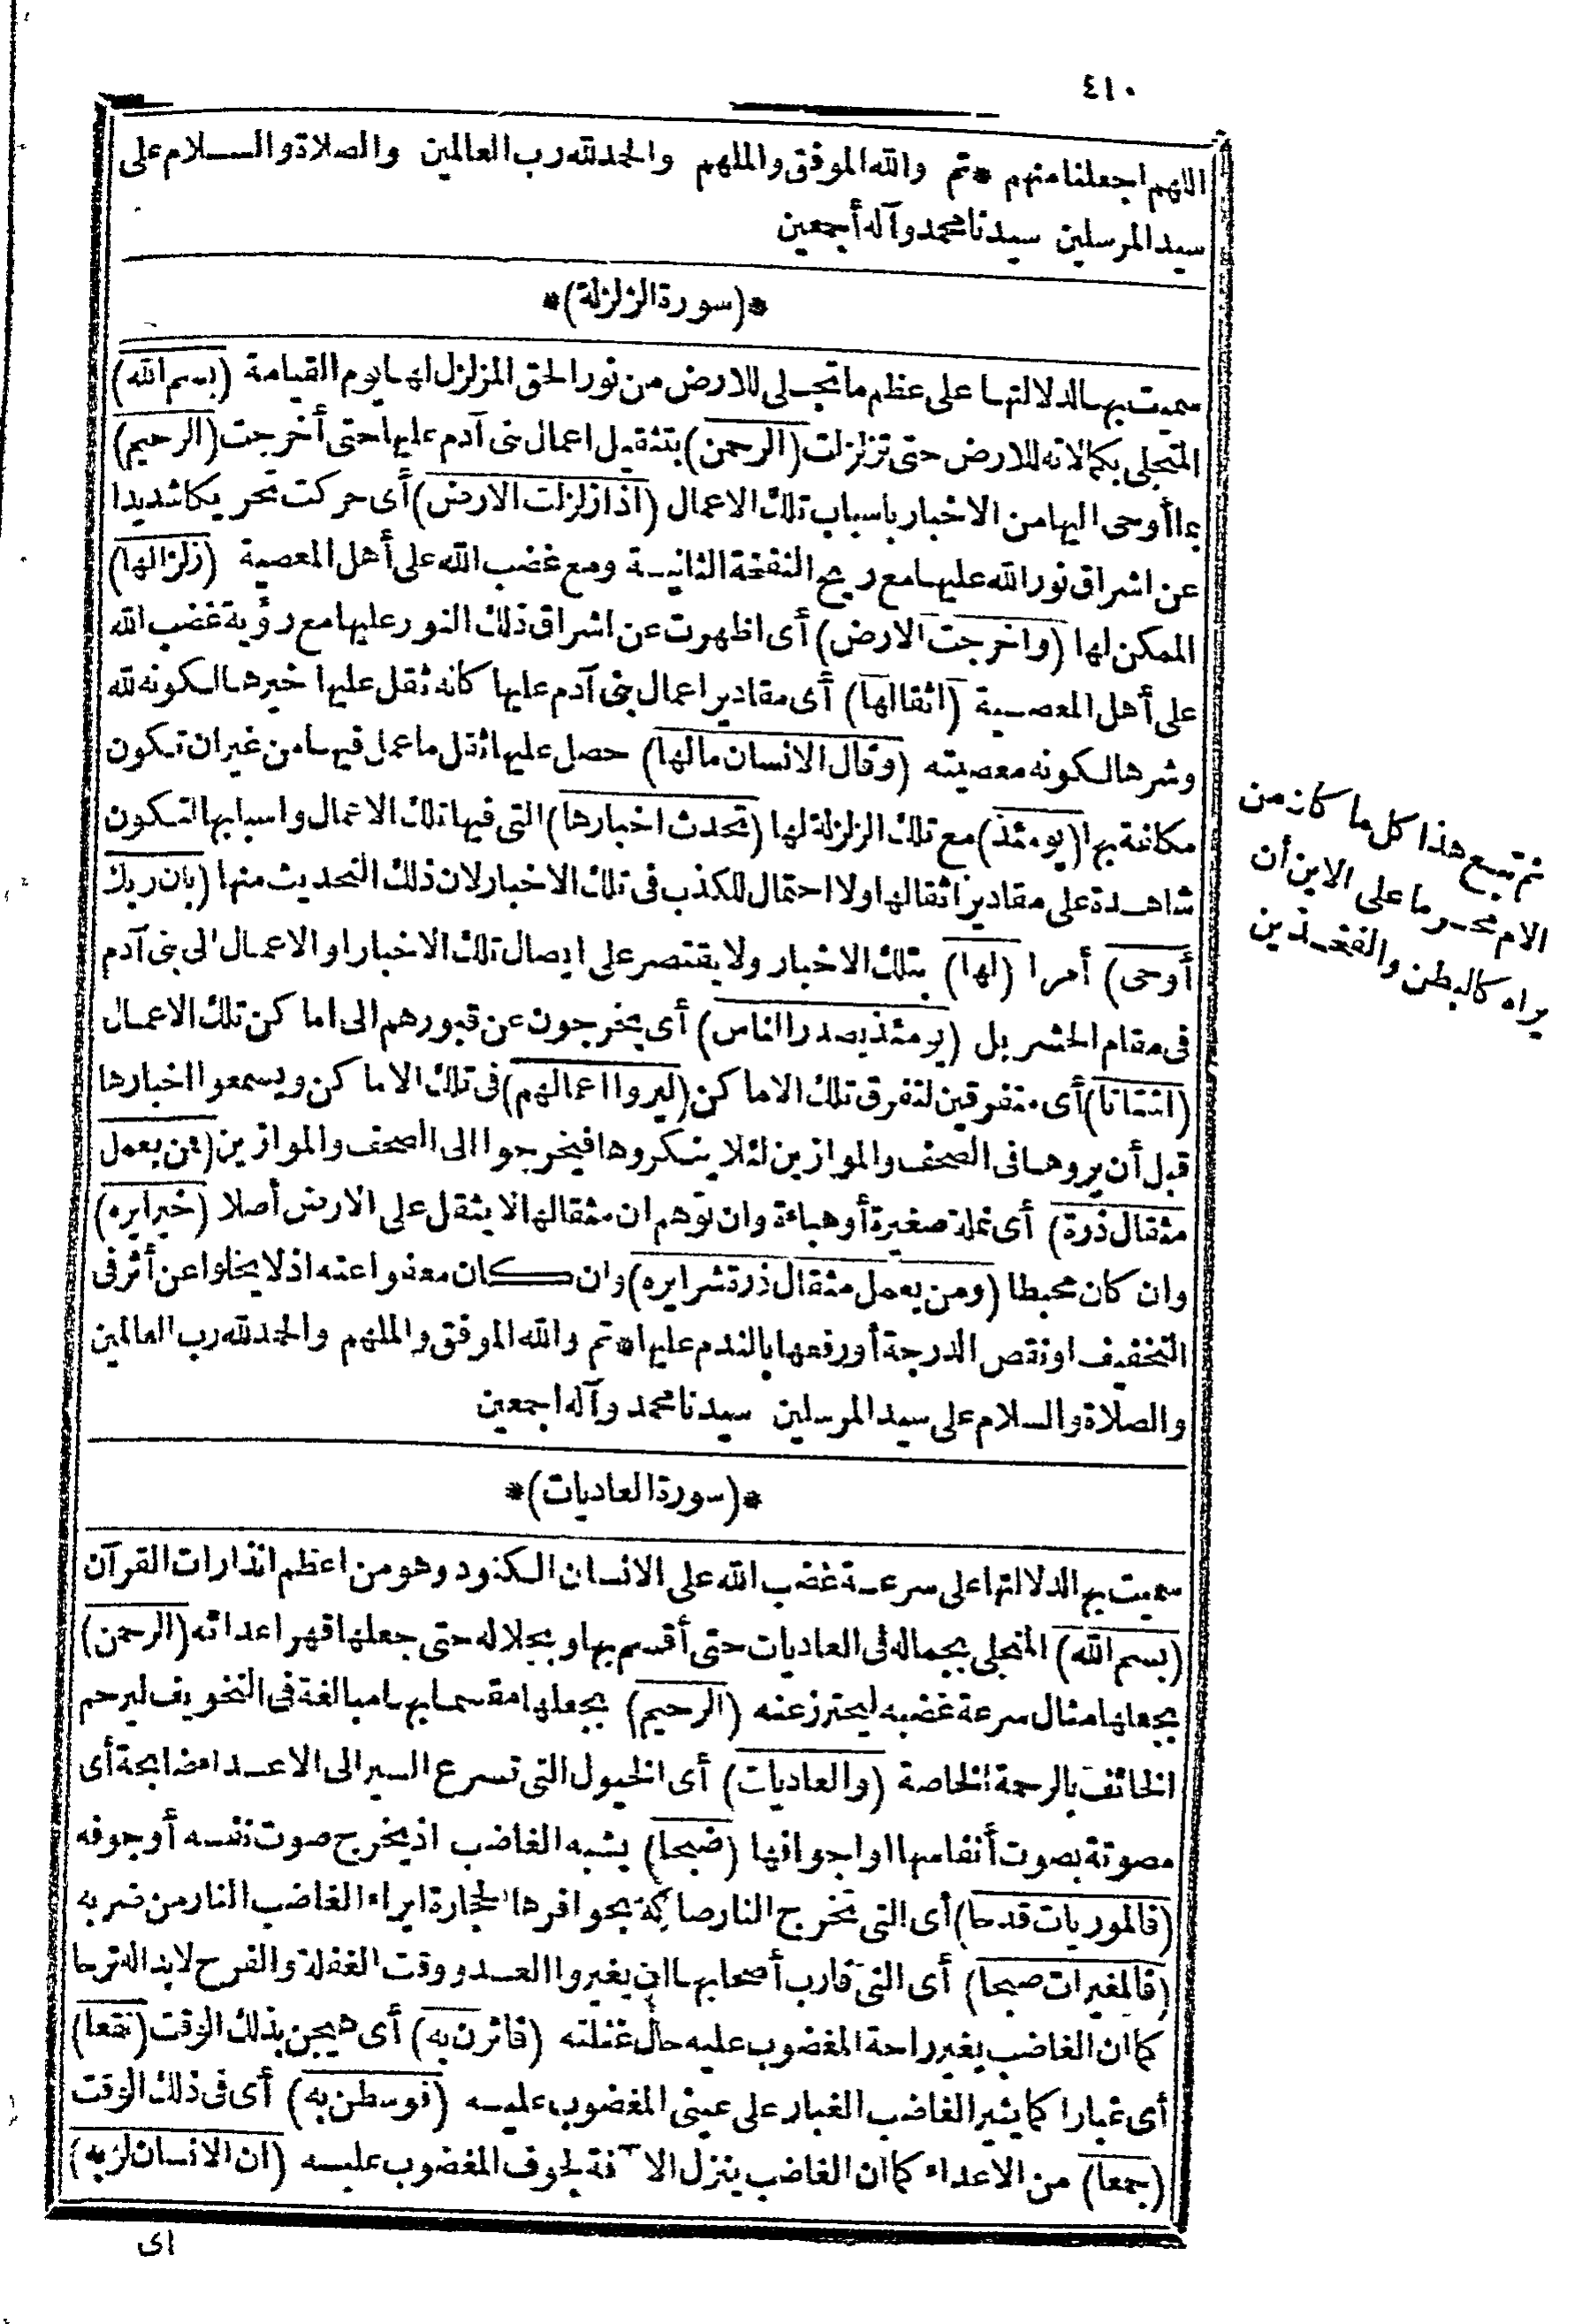 ٤١٠
اللهم اجعلنا منهم * تم والله الموفق والملهم والحمد لله رب العالمين والصلاة والسلام على
سيد المرسلين سيدنا محمد وآله أجمعين
*(سورة الزلزلة)*
سميت بها لدلالتها على عظم ما تجلى للارض من نور الحق المزلزل لها يوم القيامة (بسم الله)
المتجلى بكمالاته للارض حتى تزلزلت (الرحمن) بتثقيل اعمال بنى آدم عليها حتى أخرجت (الرحيم)
بما أوحى اليها من الاخبار باسباب تلك الاعمال (اذا زلزلت الارض) أى حركت تحريكا شديدا
عن اشراق نور الله عليها مع ريح النفخة الثانية ومع غضب الله على أهل المعصية (زلزالها)
الممكن لها (واخرجت الارض) أى اظهرت عن اشراق ذلك النور عليها مع رؤية غضب الله
على أهل المعصية (اثقالها) أى مقادير اعمال بنى آدم عليها كانه ثقل عليها خيرها لكونه لله
وشرها لكونه معصيته (وقال الانسان مالها) حصل عليها ثقل ما عمل فيها من غير ان تكون
مكلفة بها (يومئذ) مع تلك الزلزلة لها (تحدث اخبارها) التى فيها تلك الاعمال واسبابها لتكون
شاهدة على مقادير اثقالها ولا احتمال للكذب فى تلك الاخبار لان ذلك التحديث منها (بان ربك
أوحى) أمرا (لها) بتلك الاخبار ولا يقتصر على ايصال تلك الاخبار او الاعمال الى بنى آدم
فى مقام الحشر بل (يومئذ يصدر الناس) أى يخرجون عن قبورهم الى اماكن تلك الاعمال
(اشتاتا) أى متفرقين لتفرق تلك الاماكن (ليروا اعمالهم) فى تلك الاماكن ويسمعوا اخبارها
قبل أن يروها فى الصحف والموازين لئلا ينكروها فيخرجوا الى الصحف والموازين (فمن يعمل
مثقال ذرة) أى نملة صغيرة أو هباءة وان توهم ان مثقالها لا يثقل على الارض أصلا (خيرا يره)
وان كان محبطا (ومن يعمل مثقال ذرة شرا يره) وان كان معفوا عنه اذ لا يخلوا عن أثر فى
التخفيف او نقص الدرجة أو رفعها بالندم عليها * تم والله الموفق والملهم والحمد لله رب العالمين
والصلاة والسلام على سيد المرسلين سيدنا محمد وآله اجمعين
*(سورة العاديات)*
سميت بها لدلالتها على سرعة غضب الله على الانسان الكنود وهو من اعظم انذارات القرآن
(بسم الله) المتجلى بجماله فى العاديات حتى أقسم بها وبجلاله حتى جعلها قهر اعدائه (الرحمن)
بجعلها مثال سرعة غضبه ليحترز عنه (الرحيم) بجعلها مقسما بها مبالغة فى التخويف ليرحم
الخائف بالرحمة الخاصة (والعاديات) أى الخيول التى تسرع السير الى الاعداء ضابحة أى
مصوتة بصوت أنفاسها او اجوافها (ضبحا) يشبه الغاضب اذ يخرج صوت نفسه أو جوفه
(فالموريات قدحا) أى التى تخرج النار صاكة بحوافرها الحجارة ايراء الغاضب النار من ضربه
(فالمغيرات صبحا) أى التى قارب أصحابها ان يغيروا العدو وقت الغفلة والفرح لابداله ترحا
كما ان الغاضب يغير راحة المغضوب عليه حال غفلته (فاثرن به) أى هيجن بذلك الوقت (نقعا)
أى غبارا كما يثير الغاضب الغبار على عينى المغضوب عليه (فوسطن به) أى فى ذلك الوقت
(جمعا) من الاعداء كما ان الغاضب ينزل الآفة لجوف المغضوب عليه (ان الانسان لربه)
اى
ثم تبع هذا كل ما كان من
الام محرما على الابن أن
يراه كالبطن والفخذين